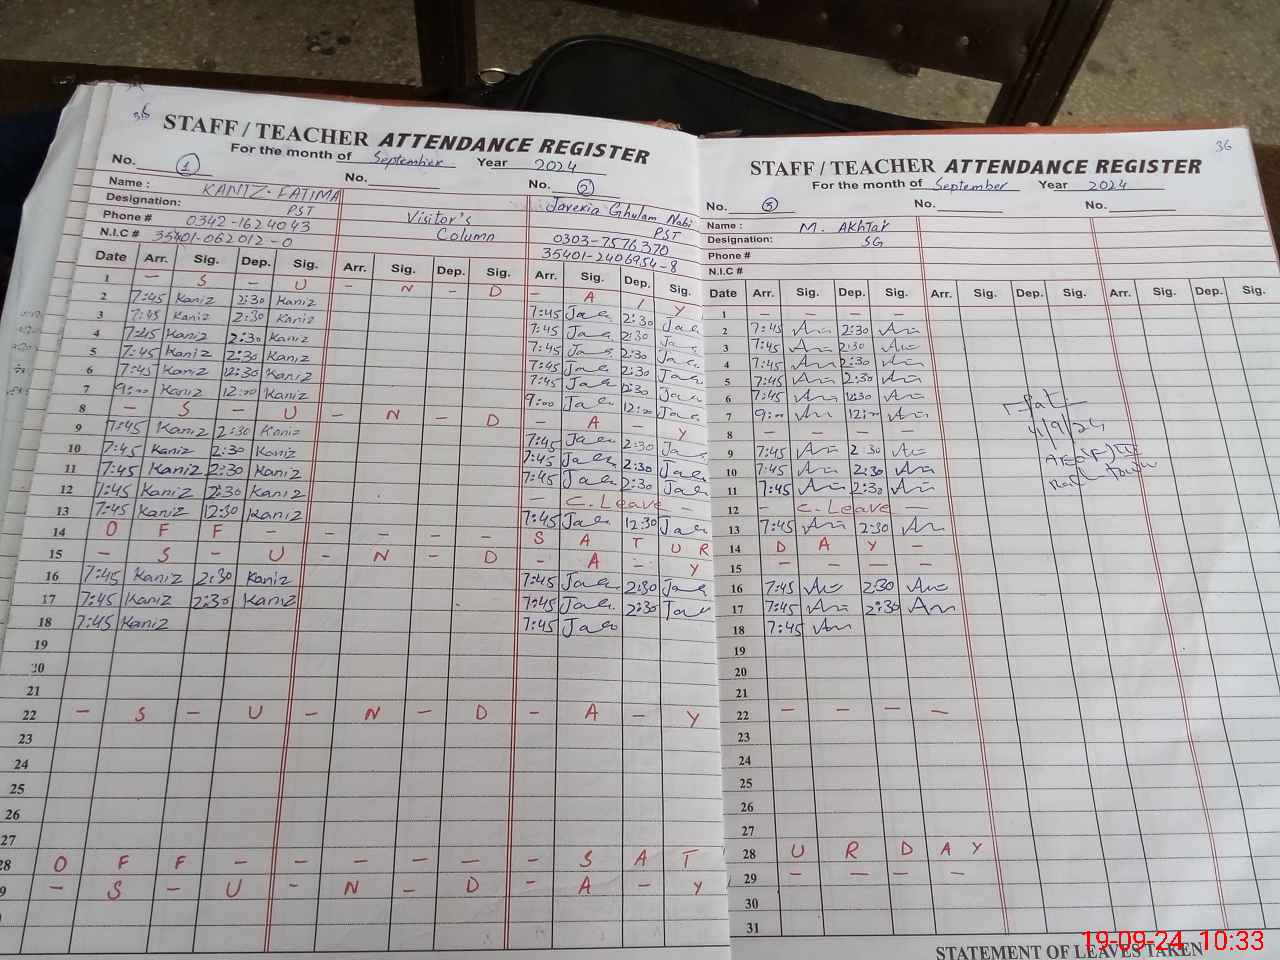 36
STAFF / TEACHER ATTENDANCE REGISTER
For the month of September Year 2024
No. 1 No. No. 2
Name : KANIZ FATIMA Visitor's Column Javeria Ghulam Nabi
Designation: PST PST
Phone # 0342-1624043 0303-7576370
N.I.C # 35401-062012-0 35401-2406954-8
Date Arr. Sig. Dep. Sig. Arr. Sig. Dep. Sig. Arr. Sig. Dep. Sig.
1 - S - U - N - D - A / Y
2 7:45 Kaniz 2:30 Kaniz 7:45 2:30
3 7:45 Kaniz 2:30 Kaniz 7:45 2:30
4 7:45 Kaniz 2:30 Kaniz 7:45 2:30
5 7:45 Kaniz 2:30 Kaniz 7:45 2:30
6 7:45 Kaniz 12:30 Kaniz 7:45 12:30
7 9:00 Kaniz 12:00 Kaniz 9:00 12:00
8 - S - U - N - D - A - Y
9 7:45 Kaniz 2:30 Kaniz 7:45 2:30
10 7:45 Kaniz 2:30 Kaniz 7:45 2:30
11 7:45 Kaniz 2:30 Kaniz 7:45 2:30
12 7:45 Kaniz 2:30 Kaniz - C. Leave -
13 7:45 Kaniz 12:30 Kaniz 7:45 12:30
14 O F F - - - - - S A T U R
15 - S - U - N - D - A - Y
16 7:45 Kaniz 2:30 Kaniz 7:45 2:30
17 7:45 Kaniz 2:30 Kaniz 7:45 2:30
18 7:45 Kaniz 7:45
19
20
21
22 - S - U - N - D - A - Y
23
24
25
26
27
28 O F F - - - - - - S A T
9 - S - U - N - D - A - Y
36
STAFF / TEACHER ATTENDANCE REGISTER
For the month of September Year 2024
No. 3 No. No.
Name : M. AKhtar
Designation: SG
Phone #
N.I.C #
Date Arr. Sig. Dep. Sig. Arr. Sig. Dep. Sig. Arr. Sig. Dep. Sig.
1 - - - -
2 7:45 2:30
3 7:45 2:30
4 7:45 2:30
5 7:45 2:30
6 7:45 12:30
7 9:00 12:00
8 - - - -
9 7:45 2:30
10 7:45 2:30
11 7:45 2:30
12 - C. Leave -
13 7:45 2:30
14 D A Y -
15 - - - -
16 7:45 2:30
17 7:45 2:30
18 7:45
19
20
21
22 - - - -
23
24
25
26
27
28 U R D A Y
29 - - - -
30
31
STATEMENT OF LEAVES TAKEN
19-09-24 10:33